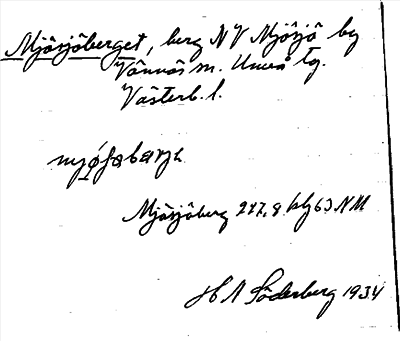 Mjösjöberget, berg NV Mjösjö by
Vännäs sn. Umeå tg.
Västerb. l.
Mjösjöberg 277,8 blg 63 NM
H A Söderberg 1934